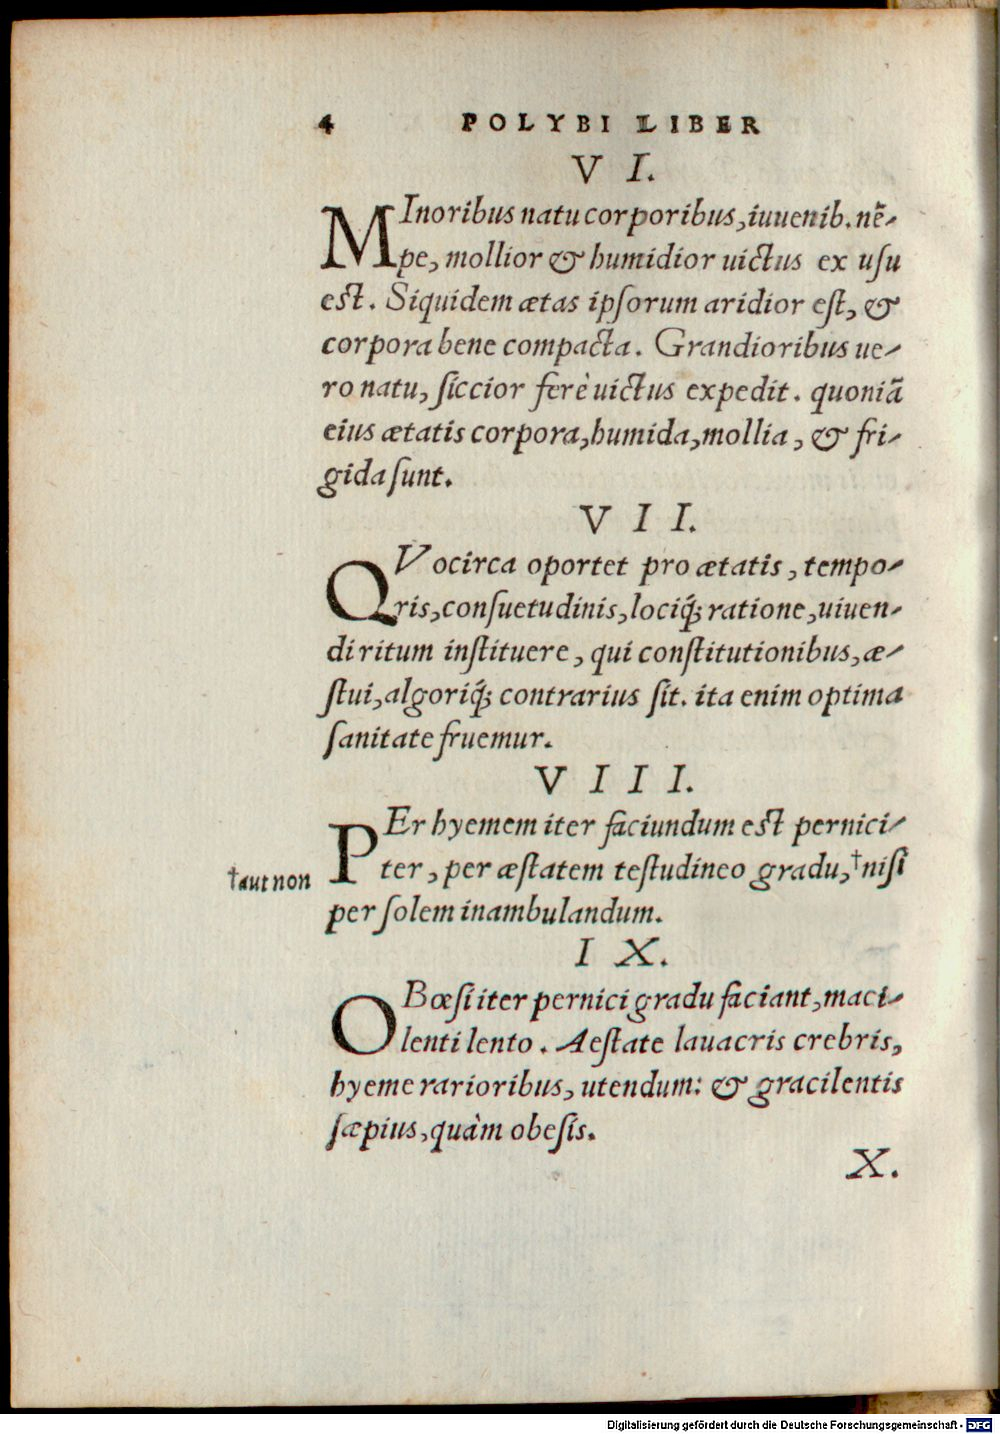 4 POLYBI LIBER
VI.
MInoribus natu corporibus, iuuenib. nē-
pe, mollior & humidior uictus ex usu
est. Siquidem ætas ipſorum aridior eſt, &
corpora bene compacta. Grandioribus ue-
ro natu, ſiccior ferè uictus expedit. quoniã
eius ætatis corpora, humida, mollia, & fri-
gida ſunt.
VII.
QVocirca oportet pro ætatis, tempo-
ris, conſuetudinis, lociq́; ratione, uiuen-
di ritum inſtituere, qui conſtitutionibus, æ-
ſtui, algoriq́; contrarius ſit. ita enim optima
ſanitate fruemur.
VIII.
PEr hyemem iter faciundum est pernici-
ter, per æſtatem teſtudineo gradu, †niſi
†aut non
per ſolem inambulandum.
IX.
OBœſi iter pernici gradu faciant, maci-
lenti lento. Aeſtate lauacris crebris,
hyeme rarioribus, utendum: & gracilentis
ſæpius, quàm obeſis.
X.
Digitalisierung gefördert durch die Deutsche Forschungsgemeinschaft - DFG